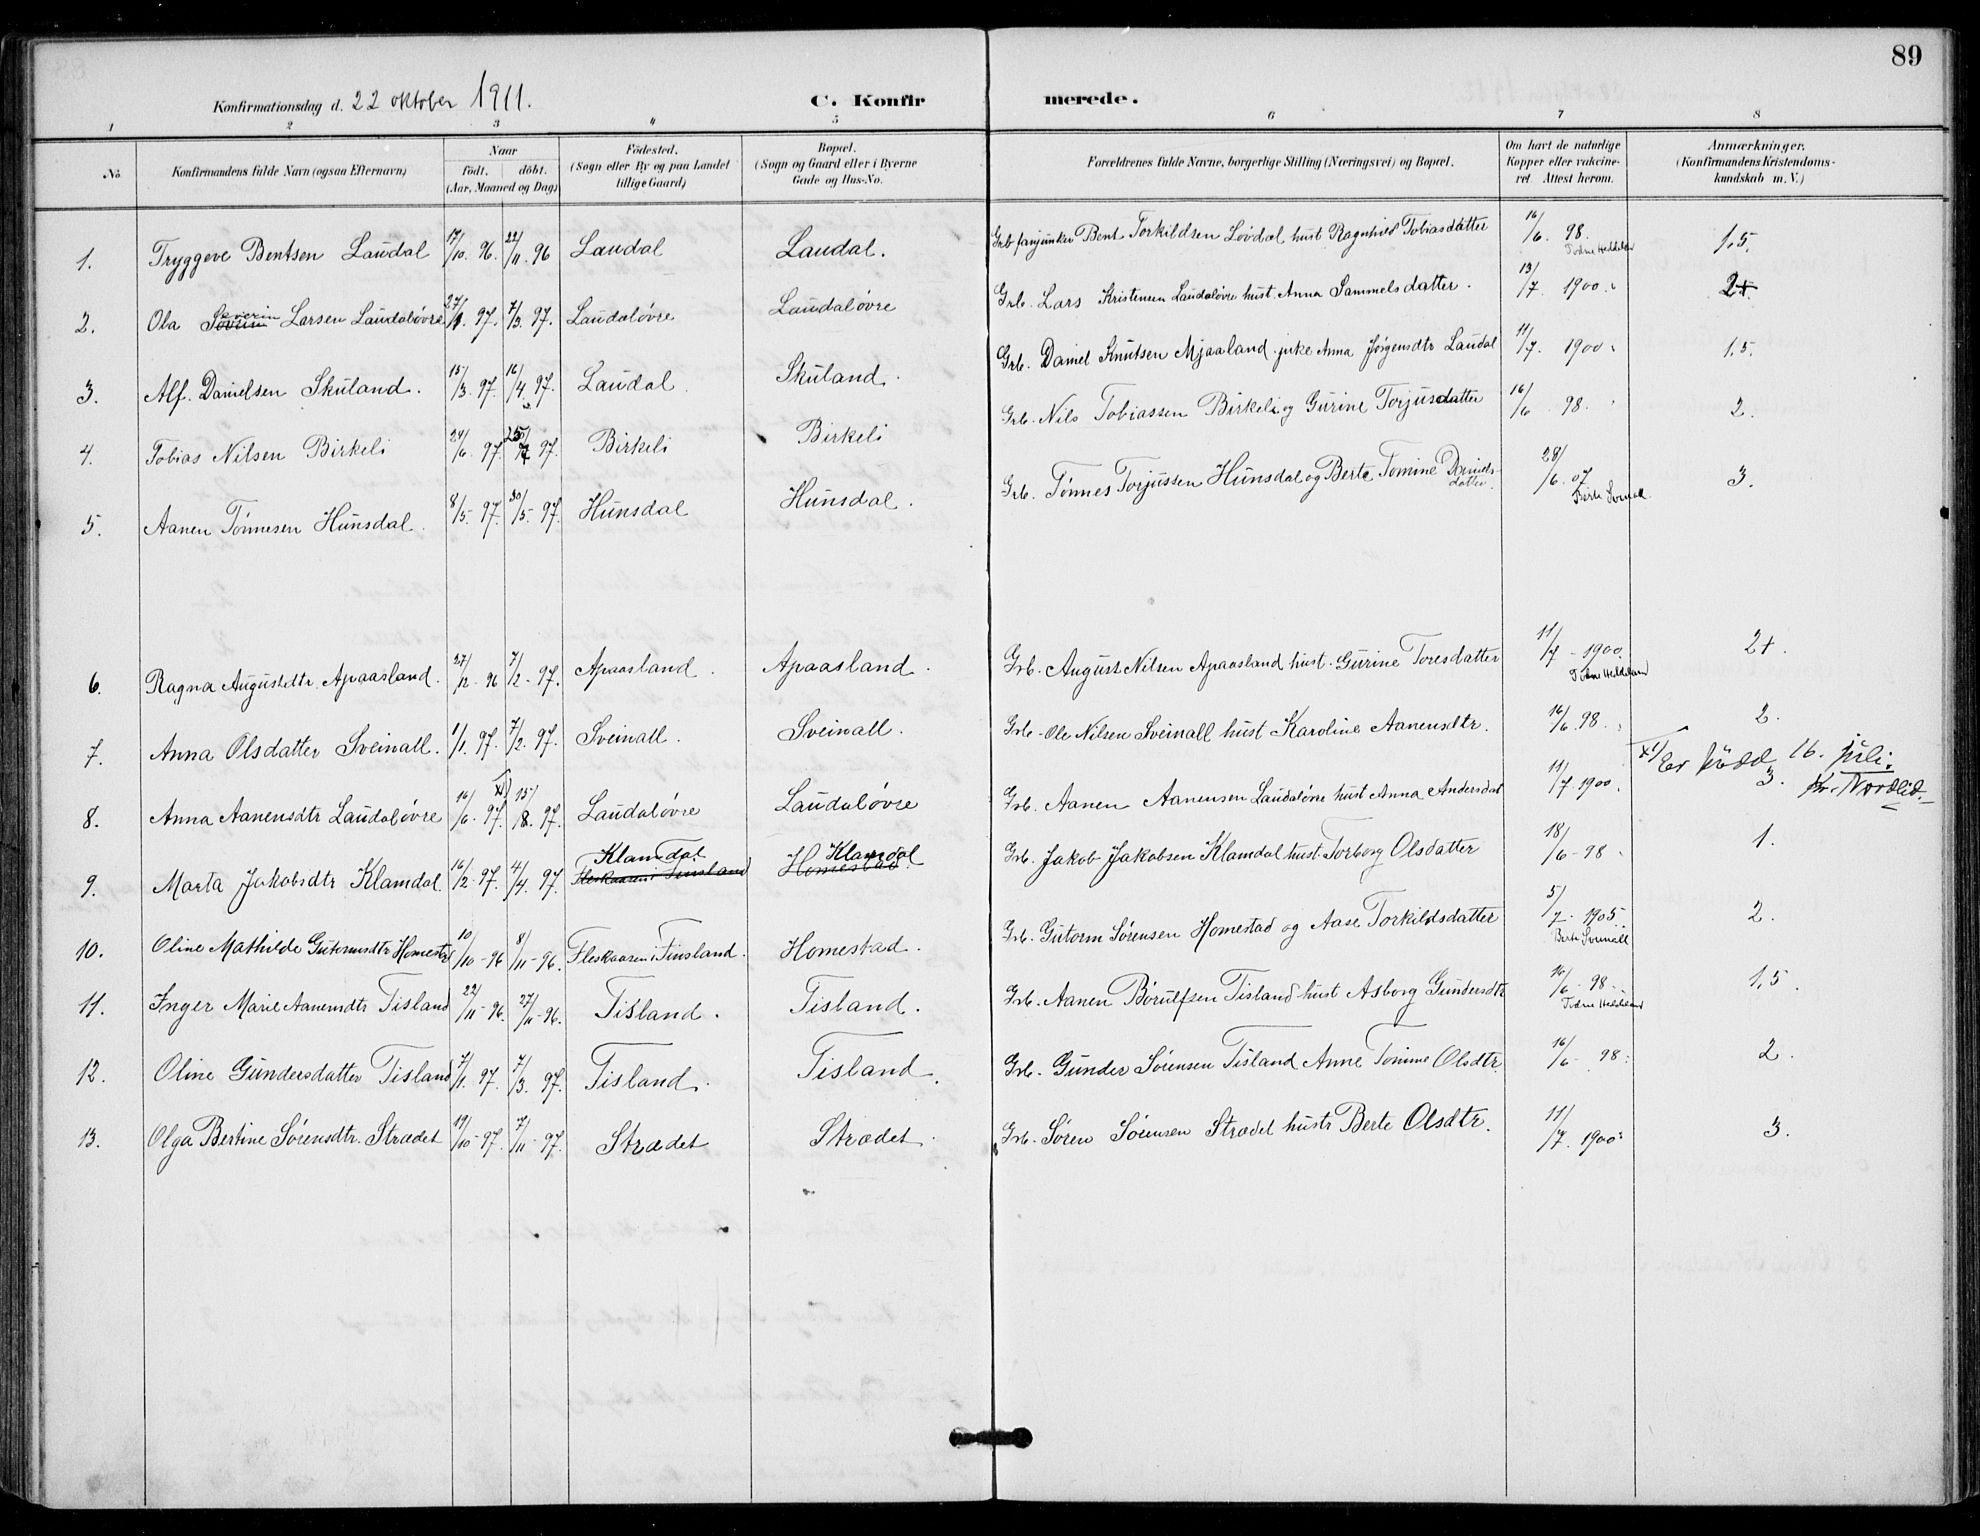 89
Konfirmationsdag d. 22 oktober 1911.
C. Konfirmerede.
1 2 3 4 5 6 7 8
No
Konfirmandens fulde Navn (ogsaa Efternavn)
Naar
født. døbt.
(Aar, Maaned og Dag)
Fødested.
(Sogn eller By og paa Landet
tillige Gaard)
Bopæl.
(Sogn og Gaard eller i Byerne
Gade og Hus-No.
Forældrenes fulde Navne, borgerlige Stilling (Næringsvei) og Bopæl.
Om havt de naturlige
Kopper eller vakcine-
ret. Attest herom.
Anmærkninger.
(Konfirmandens Kristendoms-
kundskab m. V.)
1. Tryggeve Bentsen Laudal 17/10. 96. 22/11. 96 Laudal Laudal. Grb fanjunker Bent Torkildsen Lövdal hust Ragnhild Tobiasdatter 16/6. 98. 1,5.
2. Ola Severin Larsen Laudaløvre 27/1. 97. 7/3. 97. Laudaløvre Laudaløvre Grb. Lars Kristensen Laudaløvre hust. Anna Sammelsdatter. 13/7. 1900. 2+
3. Alf. Danielsen Skuland. 15/3. 97. 16/4. 97. Laudal. Skuland. Grb. Daniel Knutsen Mjaaland pike Anna Jørgensdtr Laudal 11/7. 1900. 1,5.
4. Tobias Nilsen Birkeli 24/6. 97. 25/7. 97. Birkeli Birkeli Grb. Nils Tobiassen Birkeli og Gurine Torjusdatter 16/6. 98. 2.
5. Aanen Tønnesen Hunsdal. 8/5. 97. 30/5. 97. Hunsdal Hunsdal. Grb. Tønnes Torjussen Hunsdal og Berte Tomine Daniels-
datter. 28/6. 07 3.
6. Ragna Augustdtr. Apaasland. 27/12. 96 7/2. 97. Apaasland. Apaasland. Grb. August Nilsen Apaasland hust. Gurine Toresdatter 11/7 - 1900. 2+.
7. Anna Olsdatter Sveinall. 1/1. 97. 7/2. 97. Sveinall. Sveinall. Grb. Ole Nilsen Sveinall hust Karoline Aanensdtr. 16/6. 98. 2.
x1/ Er född 16. juli.
Kr. Nordlid.
8. Anna Aanensdtr Laudaløvre 16/6. 97. x) 15/8. 97. Laudaløvre Laudaløvre Grb. Aanen Aanensen Laudaløvre hust Anna Andersdat 11/7 1900. 3.
9. Marta Jakobsdtr Klamdal. 16/2. 97. 4/4. 97. Klamdal. Fleskaasen i Finsland Klamdal Homestad. Grb. Jakob Jakobsen Klamdal hust. Torborg Olsdatter 18/6 - 98. 1.
10. Oline Mathilde Gutormsdtr Homestad 10/10 - 96 8/11 - 96. Fleskaasen i Finsland. Homestad. Grb. Gutorm Sørensen Homestad og Aase Torkildsdatter 5/7. 1905. Berte Sveinall 2.
11. Inger Marie Aanensdtr Tisland 22/11 - 96. 27/11 - 96. Tisland. Tisland. Grb. Aanen Börulfsen Tisland hust Asborg Gundersdtr 16/6 - 98. 1,5.
12. Oline Gundersdatter Tisland 7/1. 97. 7/3. 97. Tisland. Tisland. Grb. Gunder Sørensen Tisland Anne Tomine Olsdtr. 16/6 - 98. 2.
13. Olga Bertine Sørensdtr. Strædet 19/10 - 97. 7/11 - 97. Strædet Strædet. Grb. Søren Sørensen Strædet hustr Berte Olsdtr. 11/7. 1900. 3.